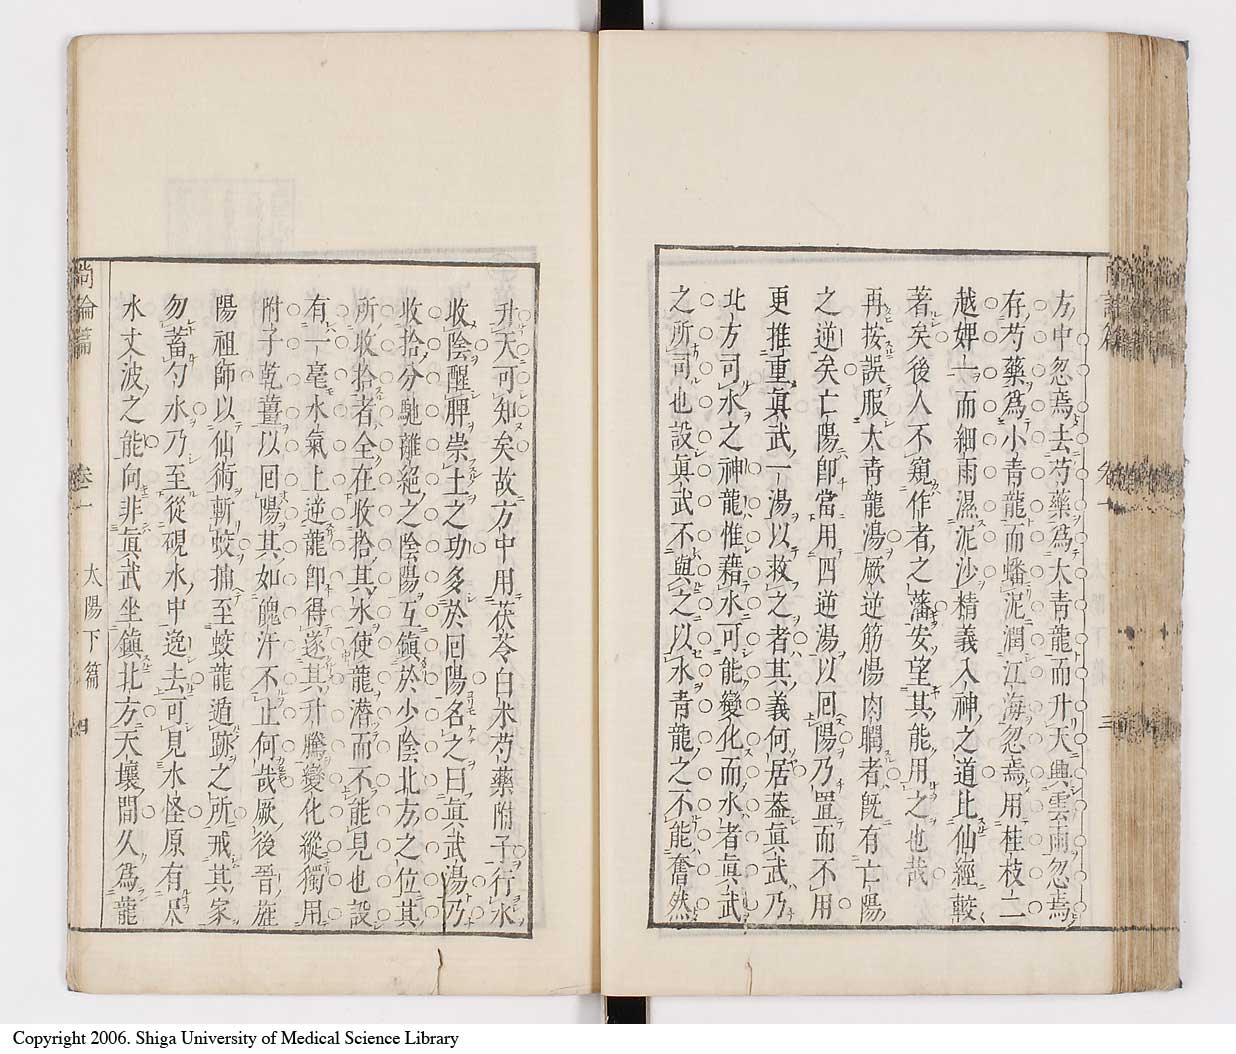 方中忽焉去芍藥爲大靑龍而升天興雲雨忽焉
存芍藥爲小靑龍而蟠泥潤江海忽焉用桂枝二
越婢一而細雨濕泥沙精義入神之道比仙經較
著矣後人不窺作者之藩安望其能用之也哉
再按誤服大靑龍湯厥逆筋惕肉瞤者旣有亡陽
之逆矣亡陽卽當用四逆湯以回陽乃置而不用
更推重眞武一湯以救之者其義何居葢眞武乃
北方司水之神龍惟藉水可能變化而水者眞武
之所司也設眞武不與之以水靑龍之不能奮然
升天可知矣故方中用茯苓白术芍藥附子行水
收陰醒脾崇土之功多於回陽名之曰眞武湯乃
收拾分馳離絕之陰陽互鎭於少陰北方之位其
所收拾者全在收拾其水使龍潛而不能見也設
有一毫水氣上逆龍卽得遂其升騰變化縱獨用
附子乾薑以回陽其如魄汗不止何哉厥後晉旌
陽祖師以仙術斬蛟捕至蛟龍遁跡之所戒其家
勿蓄勺水乃至從硯水中逸去可見水怪原有尺
水丈波之能向非眞武坐鎭北方天壤間久爲龍
尙論篇 卷一 太陽下篇 四
Copyright 2006. Shiga University of Medical Science Library